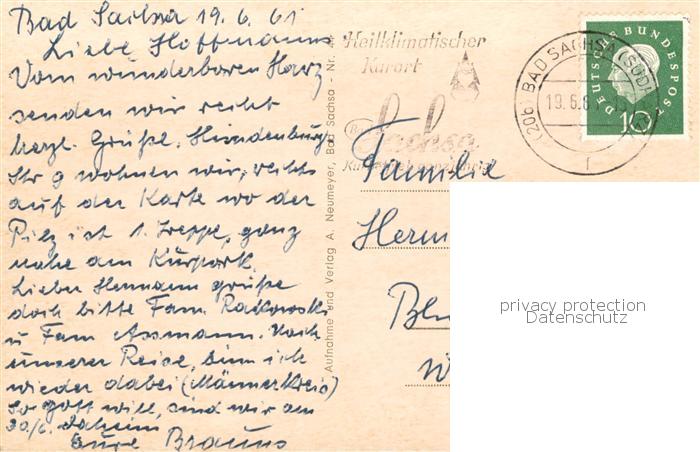 Bad Sachsa 19.6.61
Liebe Hoffmanns
Vom wunderbaren Harz
senden wir recht
herzl. Grüße. Hindenburg
Str 9 wohnen wir, rechts
auf der Karte wo der
Pilz ist 1. Treppe, ganz
nahe am Kurpark.
Lieber Hermann grüße
doch bitte Fam. Rakowski
u Fam Assmann. Nach
unserer Reise, bin ich
wieder dabei (Männerkreis)
So Gott will, sind wir am
30/6. daheim
Eure Brauns
Aufnahme und Verlag A. Neumeyer, Bad Sachsa - Nr.
Heilklimatischer
Kurort
Bad Sachsa
(20b) BAD SACHSA (SÜD
19.6.6
DEUTSCHE BUNDESPOST
10
Familie
Herm
privacy protection
Datenschutz